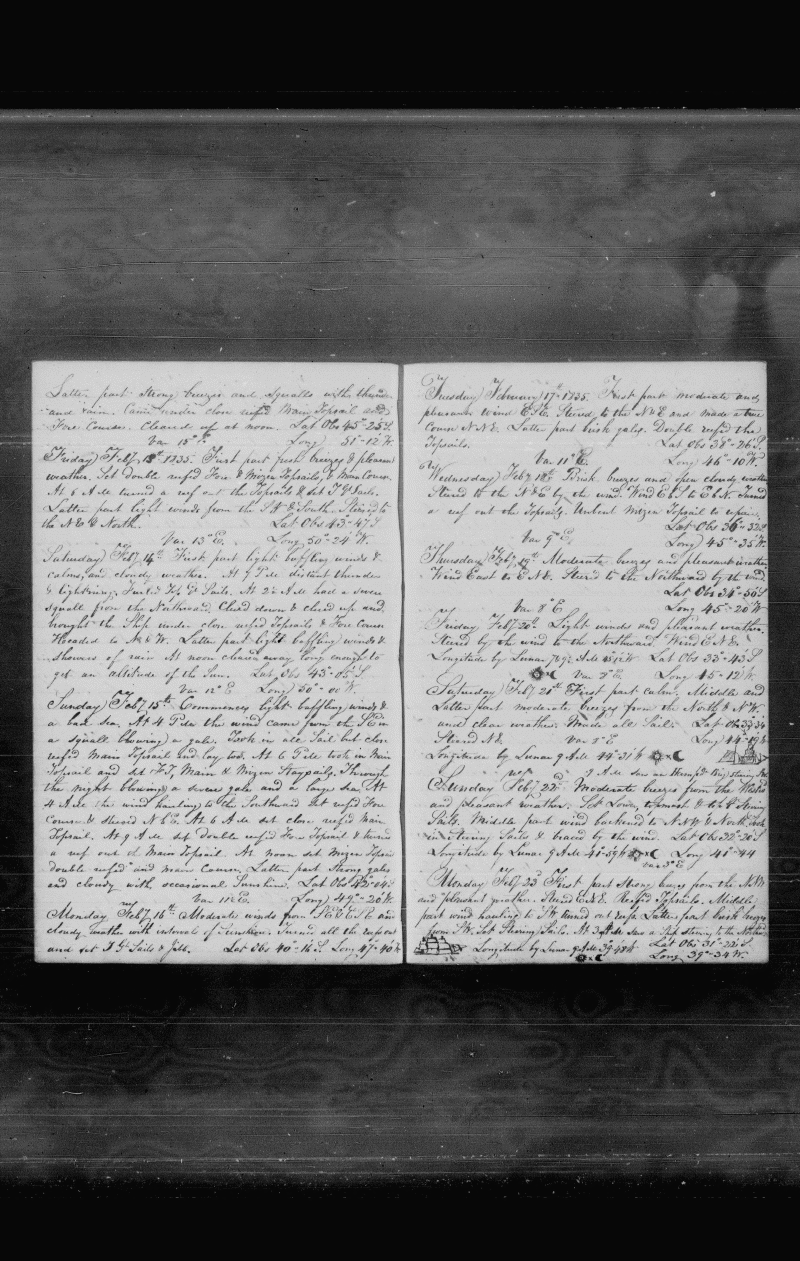 Latter part strong breezes and squalls with thunder
and rain. Came under close reef'd Main Topsail and
Fore Course. Cleared up at noon. Lat Obs 45°-25' S.
Var 15° E. Long 51-12 W.
Friday Feb'y 13th 1835. First part fresh breezes & pleasant
weather. Set double reef'd Fore & Mizen Topsails, & Main Course.
At 6 A M turned a reef out the Topsails & set T G Sails.
Latter part light winds from the S W & South. Steered to
the N E & North. Lat Obs 43-47 S
Var 13° E. Long 50°-24' W.
Saturday Feb'y 14th First part light baffling winds &
calms, and cloudy weather. At 7 P M distant thunder
& lightning. Furl'd Top Gt Sails. At 2½ A M had a severe
squall from the Northward. Clued down & clued up and
brought the Ship under close reef'd Topsails & Fore Course
Headed to N W. Latter part light baffling winds &
showers of rain. At noon cleared away long enough to
get an altitude of the Sun. Lat Obs 43-05 S
Var 12° E Long 50°-01' W.
Sunday Feb'y 15th Commences light baffling winds &
a bad sea. At 4 P M the wind came from the S E in
a squall blowing a gale. Took in all Sail but close
reef'd Main Topsail and lay too. At 6 P M took in Main
Topsail and set F T, Main & Mizen Staysails. Through
the night blowing a severe gale and a large sea. At
4 A M the wind hauling to the Southward set reef'd Fore
Course & steered N b E. At 6 A M set close reef'd Main
Topsail. At 9 A M set double reef'd Fore Topsail & turned
a reef out of Main Topsail. At noon set Mizen Topsail
double reef'd and main Course. Latter part Strong gales
and cloudy with occasional Sunshine. Lat Obs 42°-04' S.
Var 11° E. Long 49°-26' W.
Monday Feb'y 16th Moderate winds from and
cloudy weather with intervals of Sunshine. Turned all the reefs out
and set T Gt Sails & Jibb. Lat Obs 40°-16' S. Long 47°-40' W
Tuesday February 17th 1835. First part moderate and
pleasant wind Steered to the N E and made a true
Course N N E. Latter part brisk gales. Double reef'd the
Topsails. Lat Obs 38°-26' S
Var 11° E. Long 46°-10' W.
Wednesday Feb'y 18th Brisk breezes and open cloudy weather
Steered to the N E by the wind. Wind E b S to E b N. Turned
a reef out the Topsails. Unbent Mizen Topsail to repair.
Lat Obs 36°-32' S
Var 9° E. Long 45°-35' W.
Thursday Feb'y 19th Moderate breezes and pleasant weather
Wind East to E N E. Steered to the Northward by the wind.
Lat Obs 34°-50' S
Var 8° E Long 45-20 W
Friday Feb'y 20th Light winds and pleasant weather.
Steered by the wind to the Northward. Wind E N E.
Longitude by Lunar 7½ A M W Lat Obs 33°-43' S
Var 7° E Long 45-12 W.
Saturday Feb'y 21st First part calm. Middle and
Latter part moderate breezes from the North & N W.
and clear weather. Made all Sail. Lat Obs 33-34
Steered N E. Var 5° E Long 44-19 W
Longitude by Lunar 9 A M 44-31 W
7 A M saw an Steering
Sunday Feb'y 22nd Moderate breezes from the West
and pleasant weather. Set Lower, topmast & Steering
Sails. Middle part wind backened to N N W & North, took
in Steering Sails & braced by the wind. Lat Obs 32°-20' S
Longitude by Lunar 9 A M 41-59 W Long 41-44
Var 3° E
Monday Feb'y 23d First part Strong breezes from the N W
and pleasant weather. Steered E N E. Reef'd Topsails. Middle
part wind hauling to S W turned out reefs. Latter part brisk breezes
from S W. Set Steering Sails. At saw a Ship steering to the
Longitude by Lunar 9 A M 39-48 W Lat Obs 31-22 S
Long 39°-34' W.